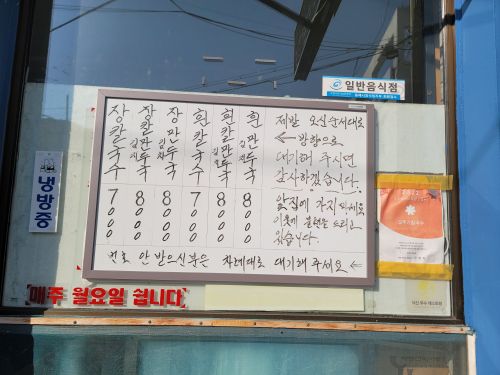 일반음식점
장칼국수 7000
장칼만두국 8000
장만두국 8000
흰칼국수 7000
흰칼만두국 8000
흰만두국 8000
제발 오실 순서대로
← 방향으로
대기해 주시면
감사하겠습니다.
앞집에 가지 마세요
이웃에 불편을 드리고
있습니다.
번호 안 받으신분은 차례대로 대기해 주세요 ⇐
냉방중
매주 월요일 쉽니다